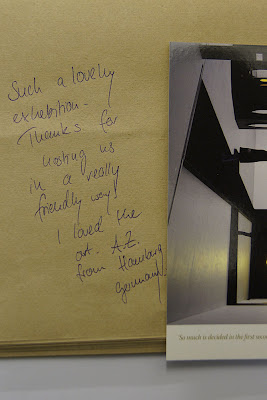 Such a lovely
exhebition.
Thanks for
hosting us
in a really
friendly way!
I loved the
art. A.Z.
from Hamburg
Germany!
So much is decided in the first